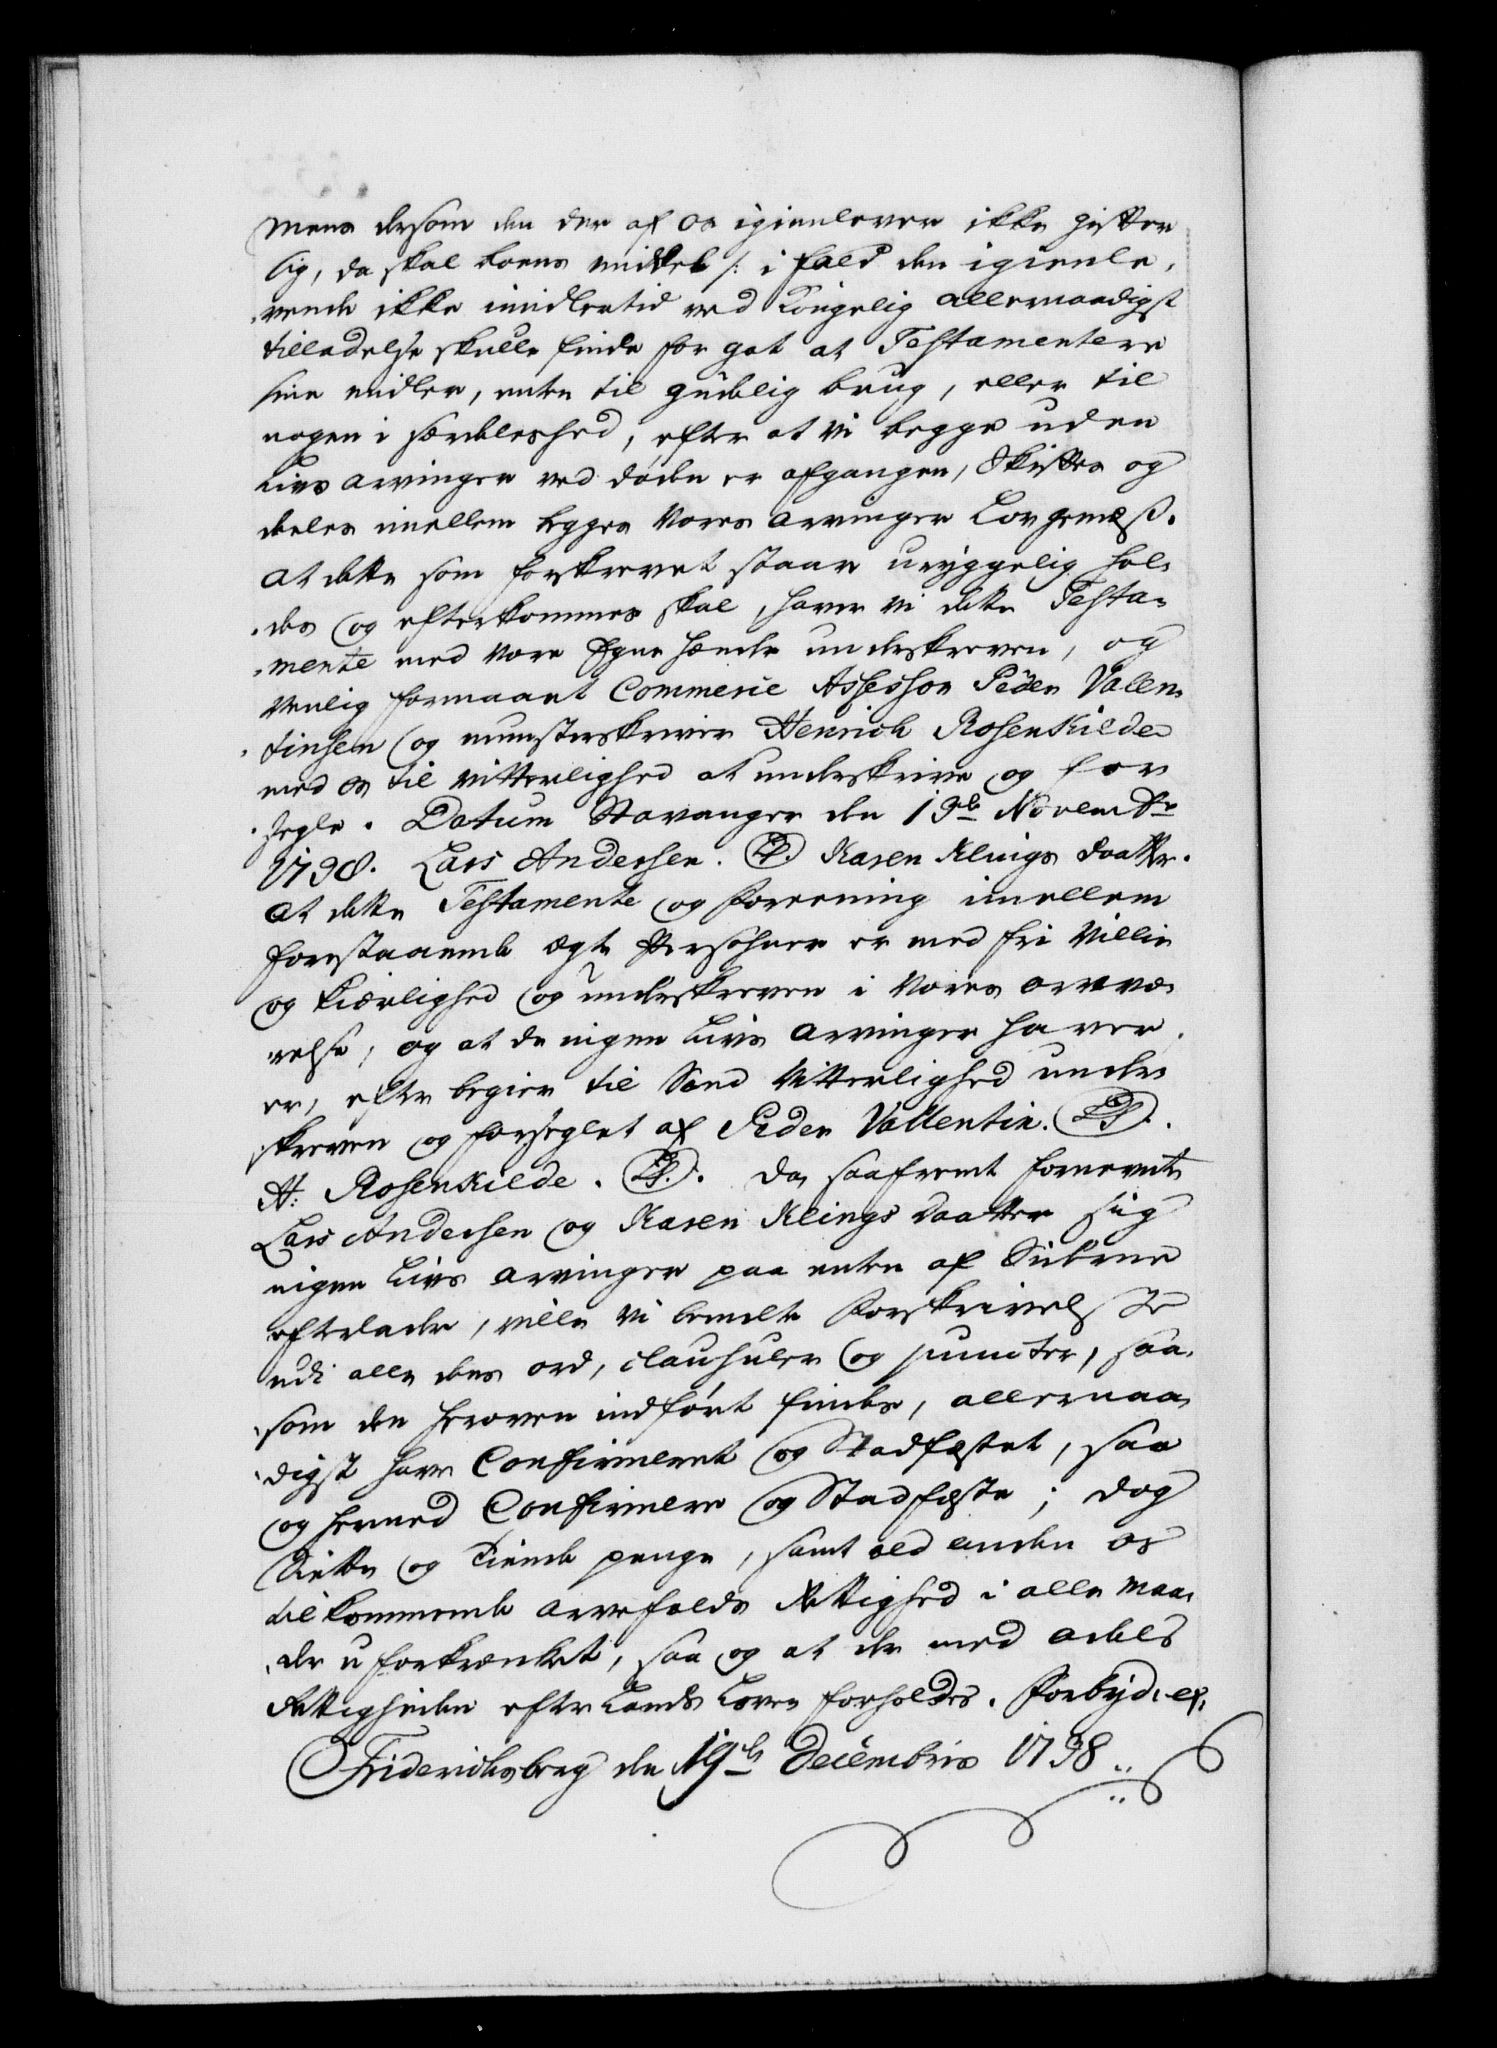 Mens dersom den der af os igienlever ikke gifter
sig, da skal boens middel /: i fald den igienle,
,vende ikke imidlertid ved Kongelig allernaadigst
tilladelse skulle finde for got at Testamentere
sine midler, enten til gudelig brug, eller til
nogen i særdeleshed, efter at vi begge uden
Livs arvinger ved døden er afgangen, Skiftes og
deeles imellem begges vores arvinger Lovgemæß.
At dette som forskrevet staar uryggelig hol,
,des og efterkommes skal, haver vi dette Testa,
,mente med vore Egne hænder underskreven, og
venlig formaaet Commerce Assessor Peder Vallen,
,tinsen og munsterskriver Henrich Rosenkilde
med os til vitterlighed at underskrive og for
,segle. Datum Stavanger den 19de Novembr
1738. Lars Andersen. (LS.) Karen Klings daatter.
At dette Testamente og Foreening imellem
forestaaende ægte Persohner er med fri Villie
og kierlighed og underskreven i Vores overvæ,
,relse, og at de ingen Livs arvinger haver,
er, efter begier til Sand Vitterlighed under
skreven og forseglet af Peder Vallentin. (LS).
H: Rosenkilde. (LS.). Da, saafremt fornevnte
Lars Andersen og Karen Klings daatter sig
ingen Livs arvinger paa enten af Siderne
efterlader, ville Vi bemelte Forskrivelse
udi alle dens ord, clausuler og puncter, saa,
,som den heroven indført findes, allernaa,
,digst have Confirmeret og Stadfæstet, saa
og hermed Confirmere og Stadfæste; dog
Siette og Tiende penge, samt ald anden os
tilkommende arvefalds Rettighed i alle Maa,
,der uforkrænket, saa og at der med adels
Rettigheden efter Lands Loven forholdes. Forbyd: ec.
Friderichsberg den 19de Decembris 1738.